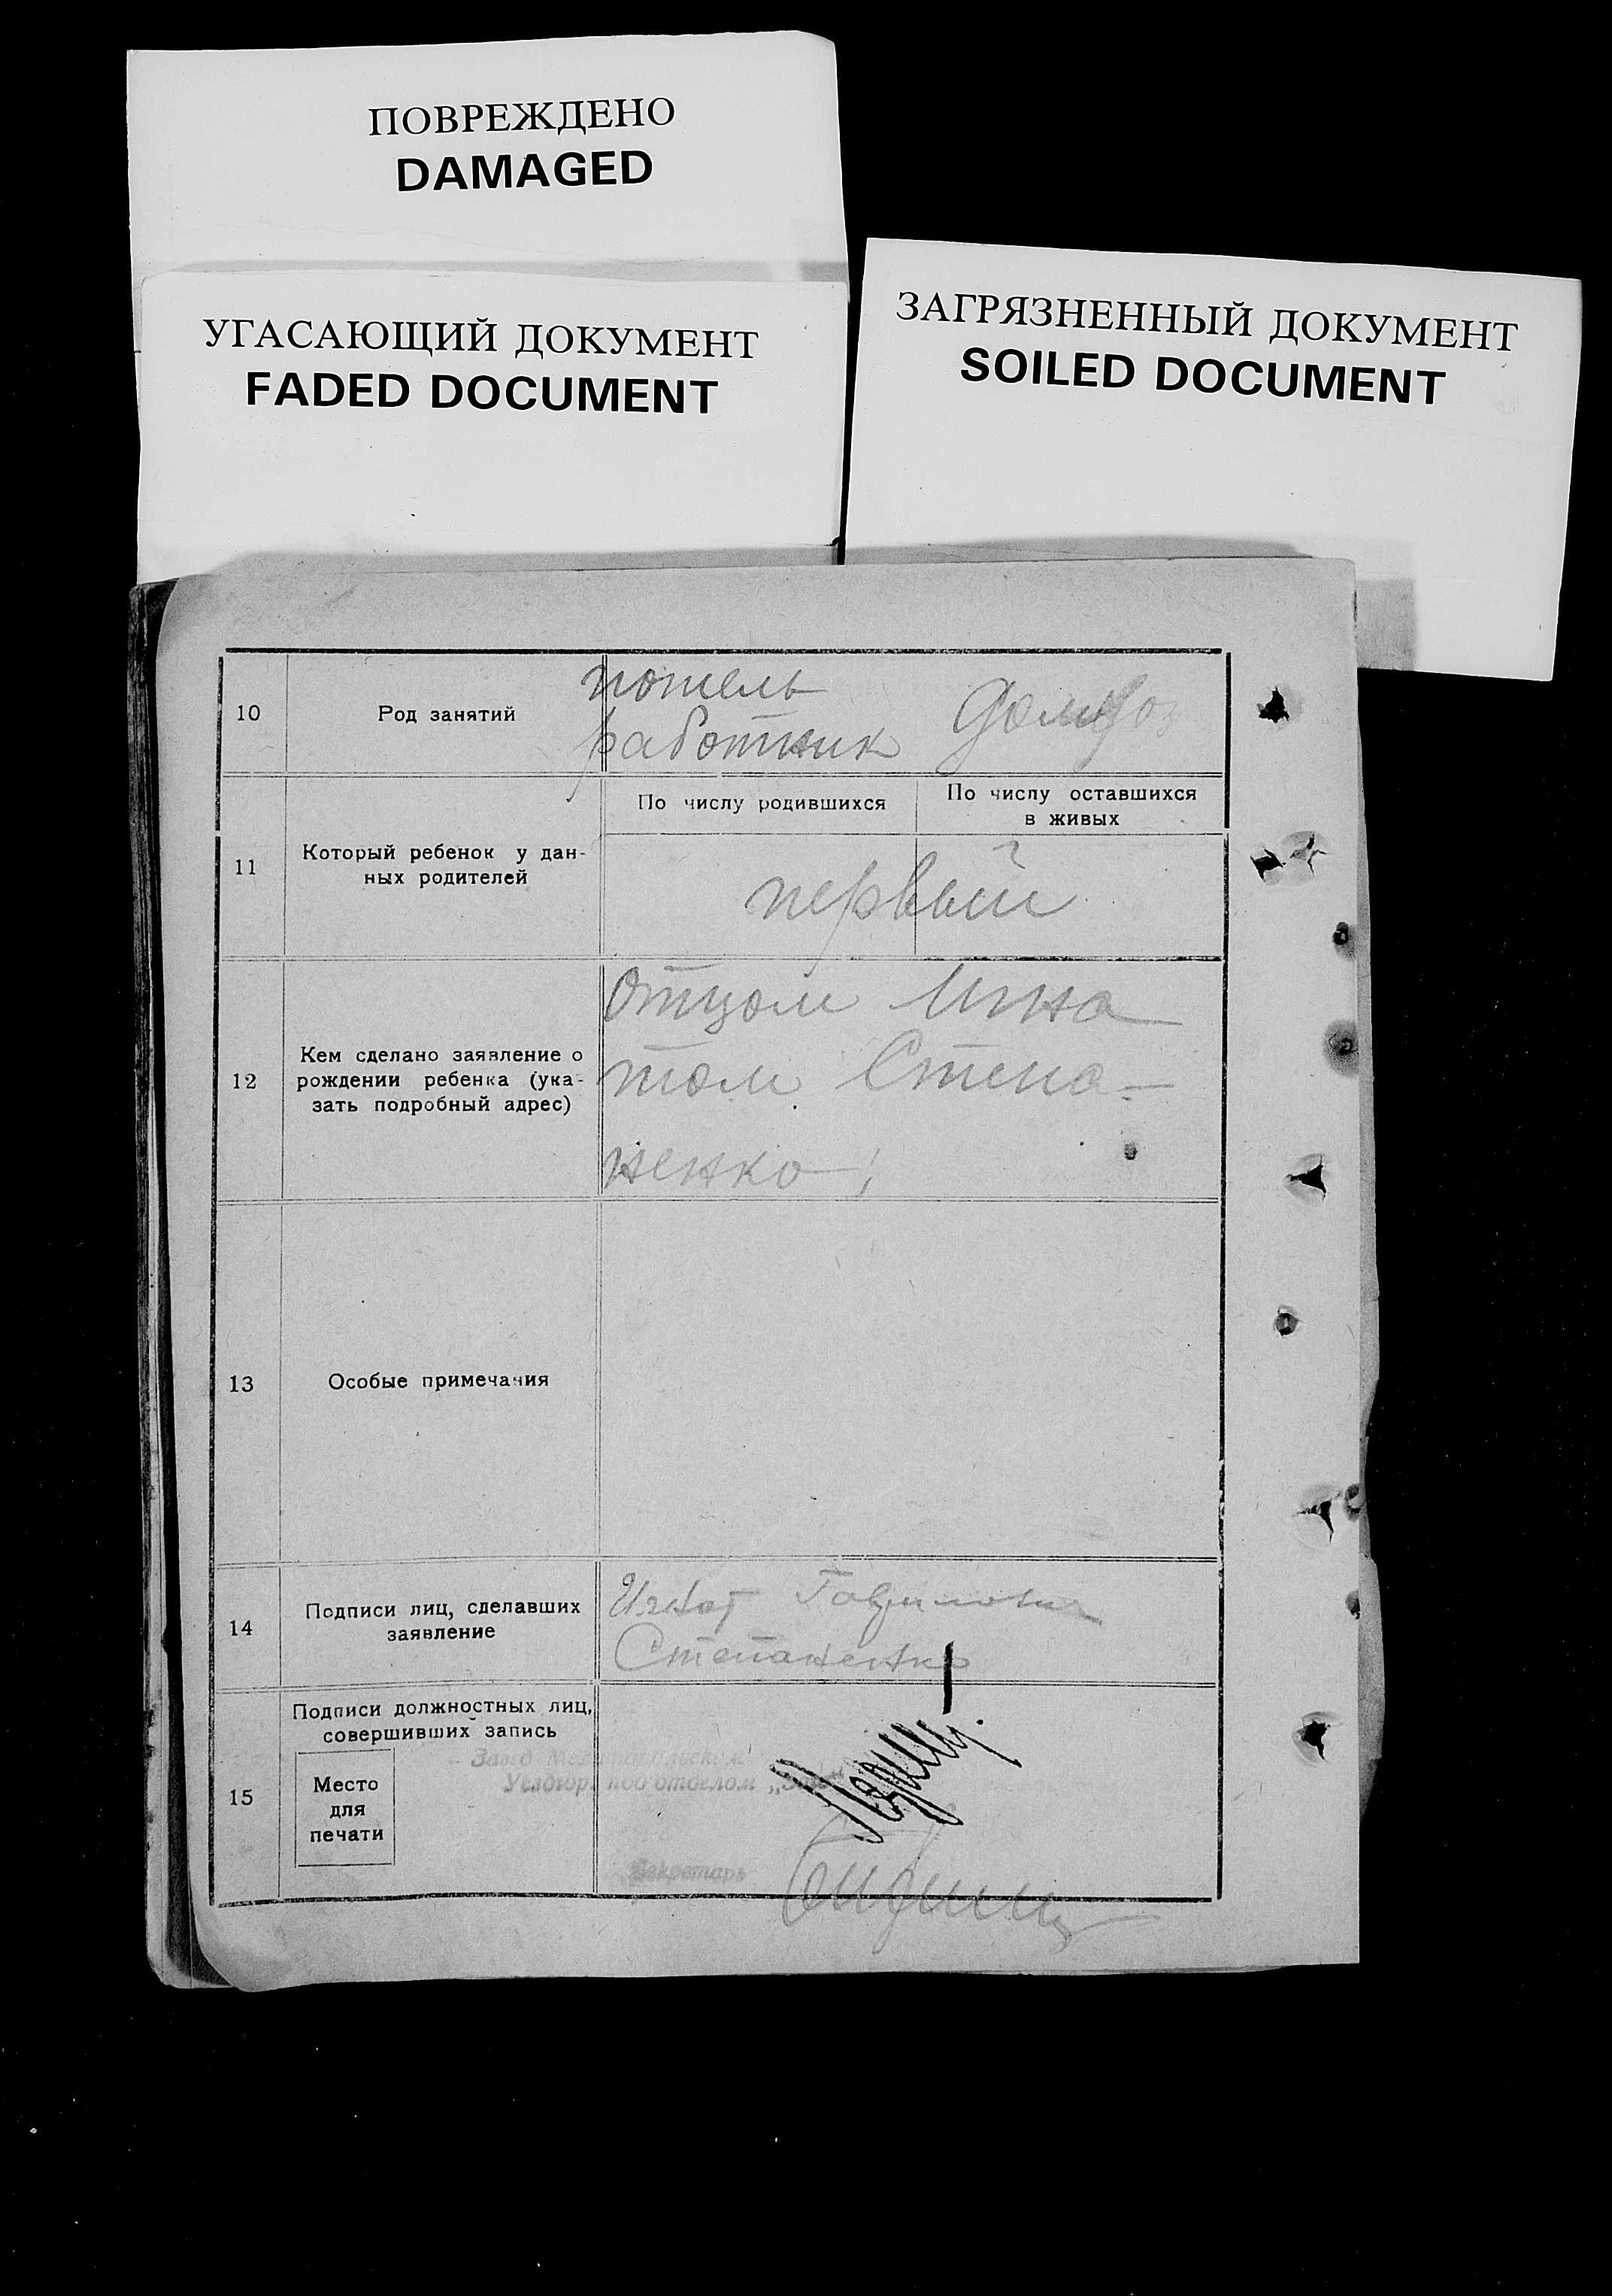 ПОВРЕЖДЕНО
DAMAGED
УГАСАЮЩИЙ ДОКУМЕНТ
FADED DOCUMENT
ЗАГРЯЗНЕННЫЙ ДОКУМЕНТ
SOILED DOCUMENT
10
Род занятий
работник
11
Который ребенок у дан-
ных родителей
По числу родившихся
По числу оставшихся
в живых
первый
12
Кем сделано заявление о
рождении ребенка (ука-
зать подробный адрес)
отцом Игна
том Степа-
ненко
13
Особые примечания
14
Подписи лиц, сделавших
заявление
Игнат Гаврилович
Степаненко
15
Подписи должностных лиц,
совершивших запись
Место
для
печати
под отделом
Секретарь